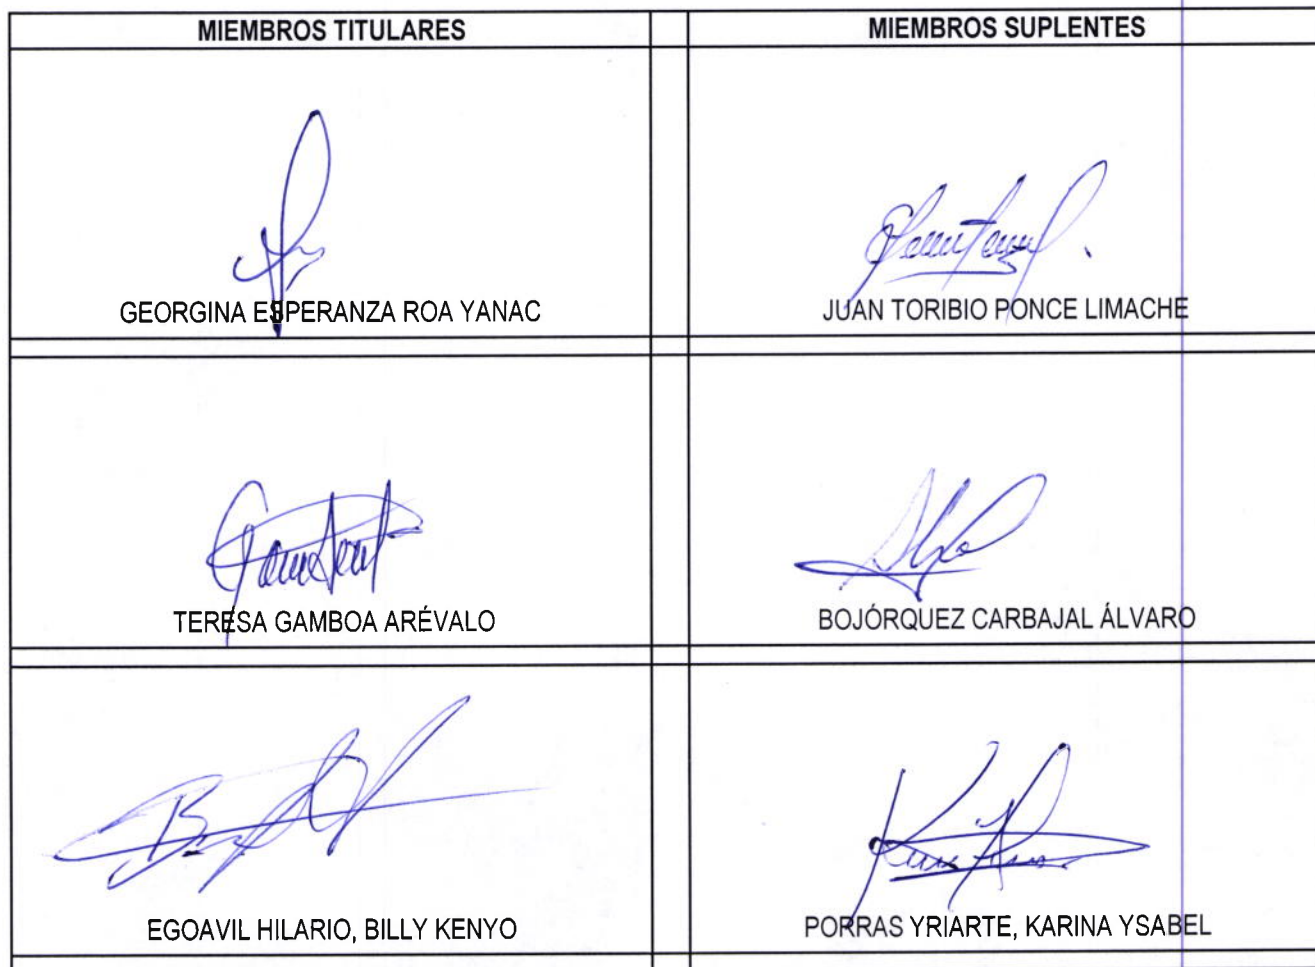 MIEMBROS TITULARES
MIEMBROS SUPLENTES
GEORGINA ESPERANZA ROA YANAC
JUAN TORIBIO PONCE LIMACHE
TERESA GAMBOA ARÉVALO
BOJÓRQUEZ CARBAJAL ÁLVARO
EGOAVIL HILARIO, BILLY KENYO
PORRAS YRIARTE, KARINA YSABEL